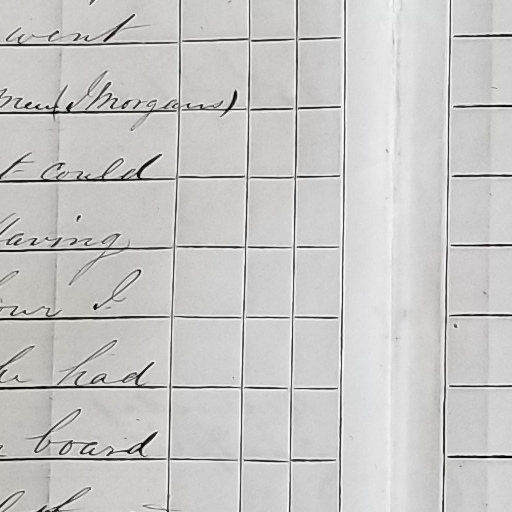 went
men (J Morgans)
t could
Having
our I
he had
board